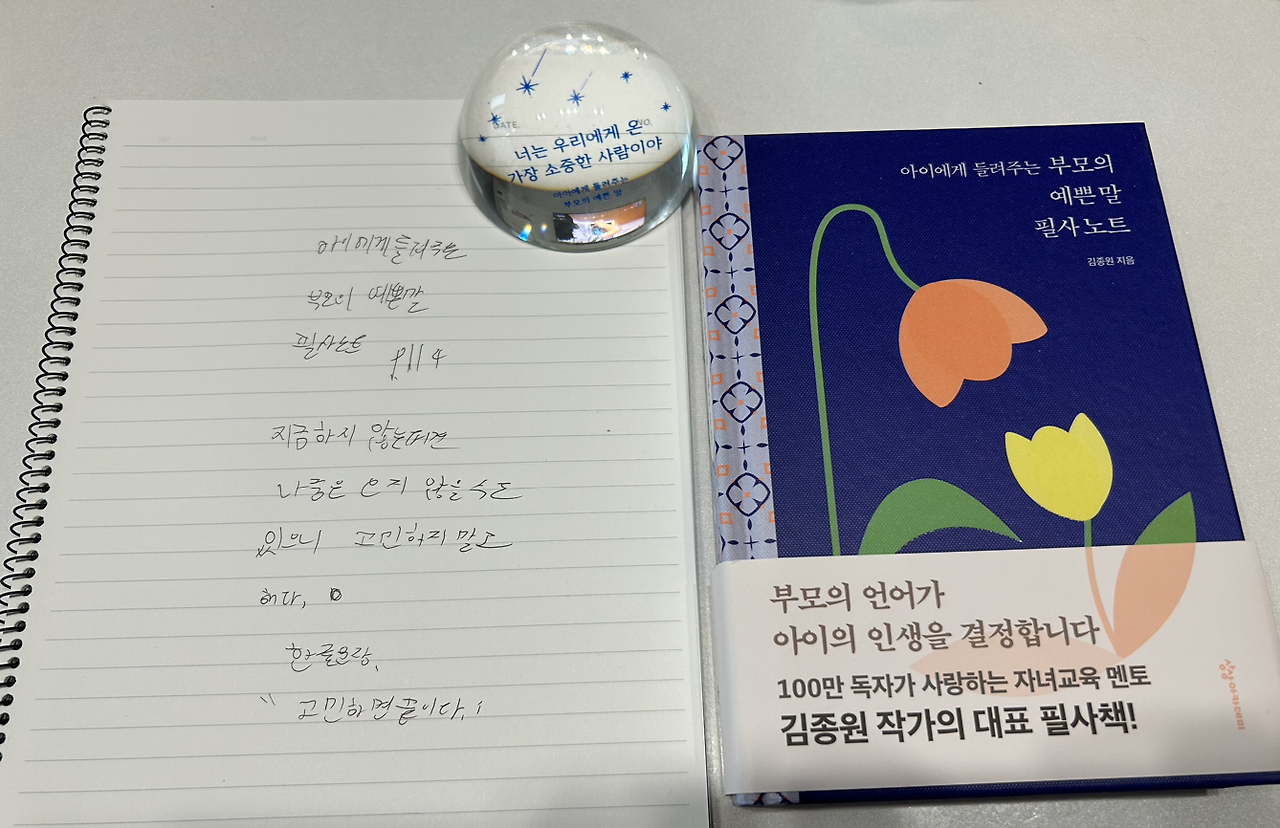 아이에게 들려주는
부모의 예쁜말
필사노트 p114
지금하지 않는다면
나중은 오지 않을수도
있으니 고민하지말고
하다.
한줄요약,
" 고민하면끝이다."
DATE.
NO.
너는 우리에게 온
가장 소중한 사람이야
아이에게 들려주는
부모의 예쁜 말
아이에게 들려주는 부모의
예쁜 말
필사 노트
김종원 지음
부모의 언어가
아이의 인생을 결정합니다
100만 독자가 사랑하는 자녀교육 멘토
김종원 작가의 대표 필사책!
상상아카데미